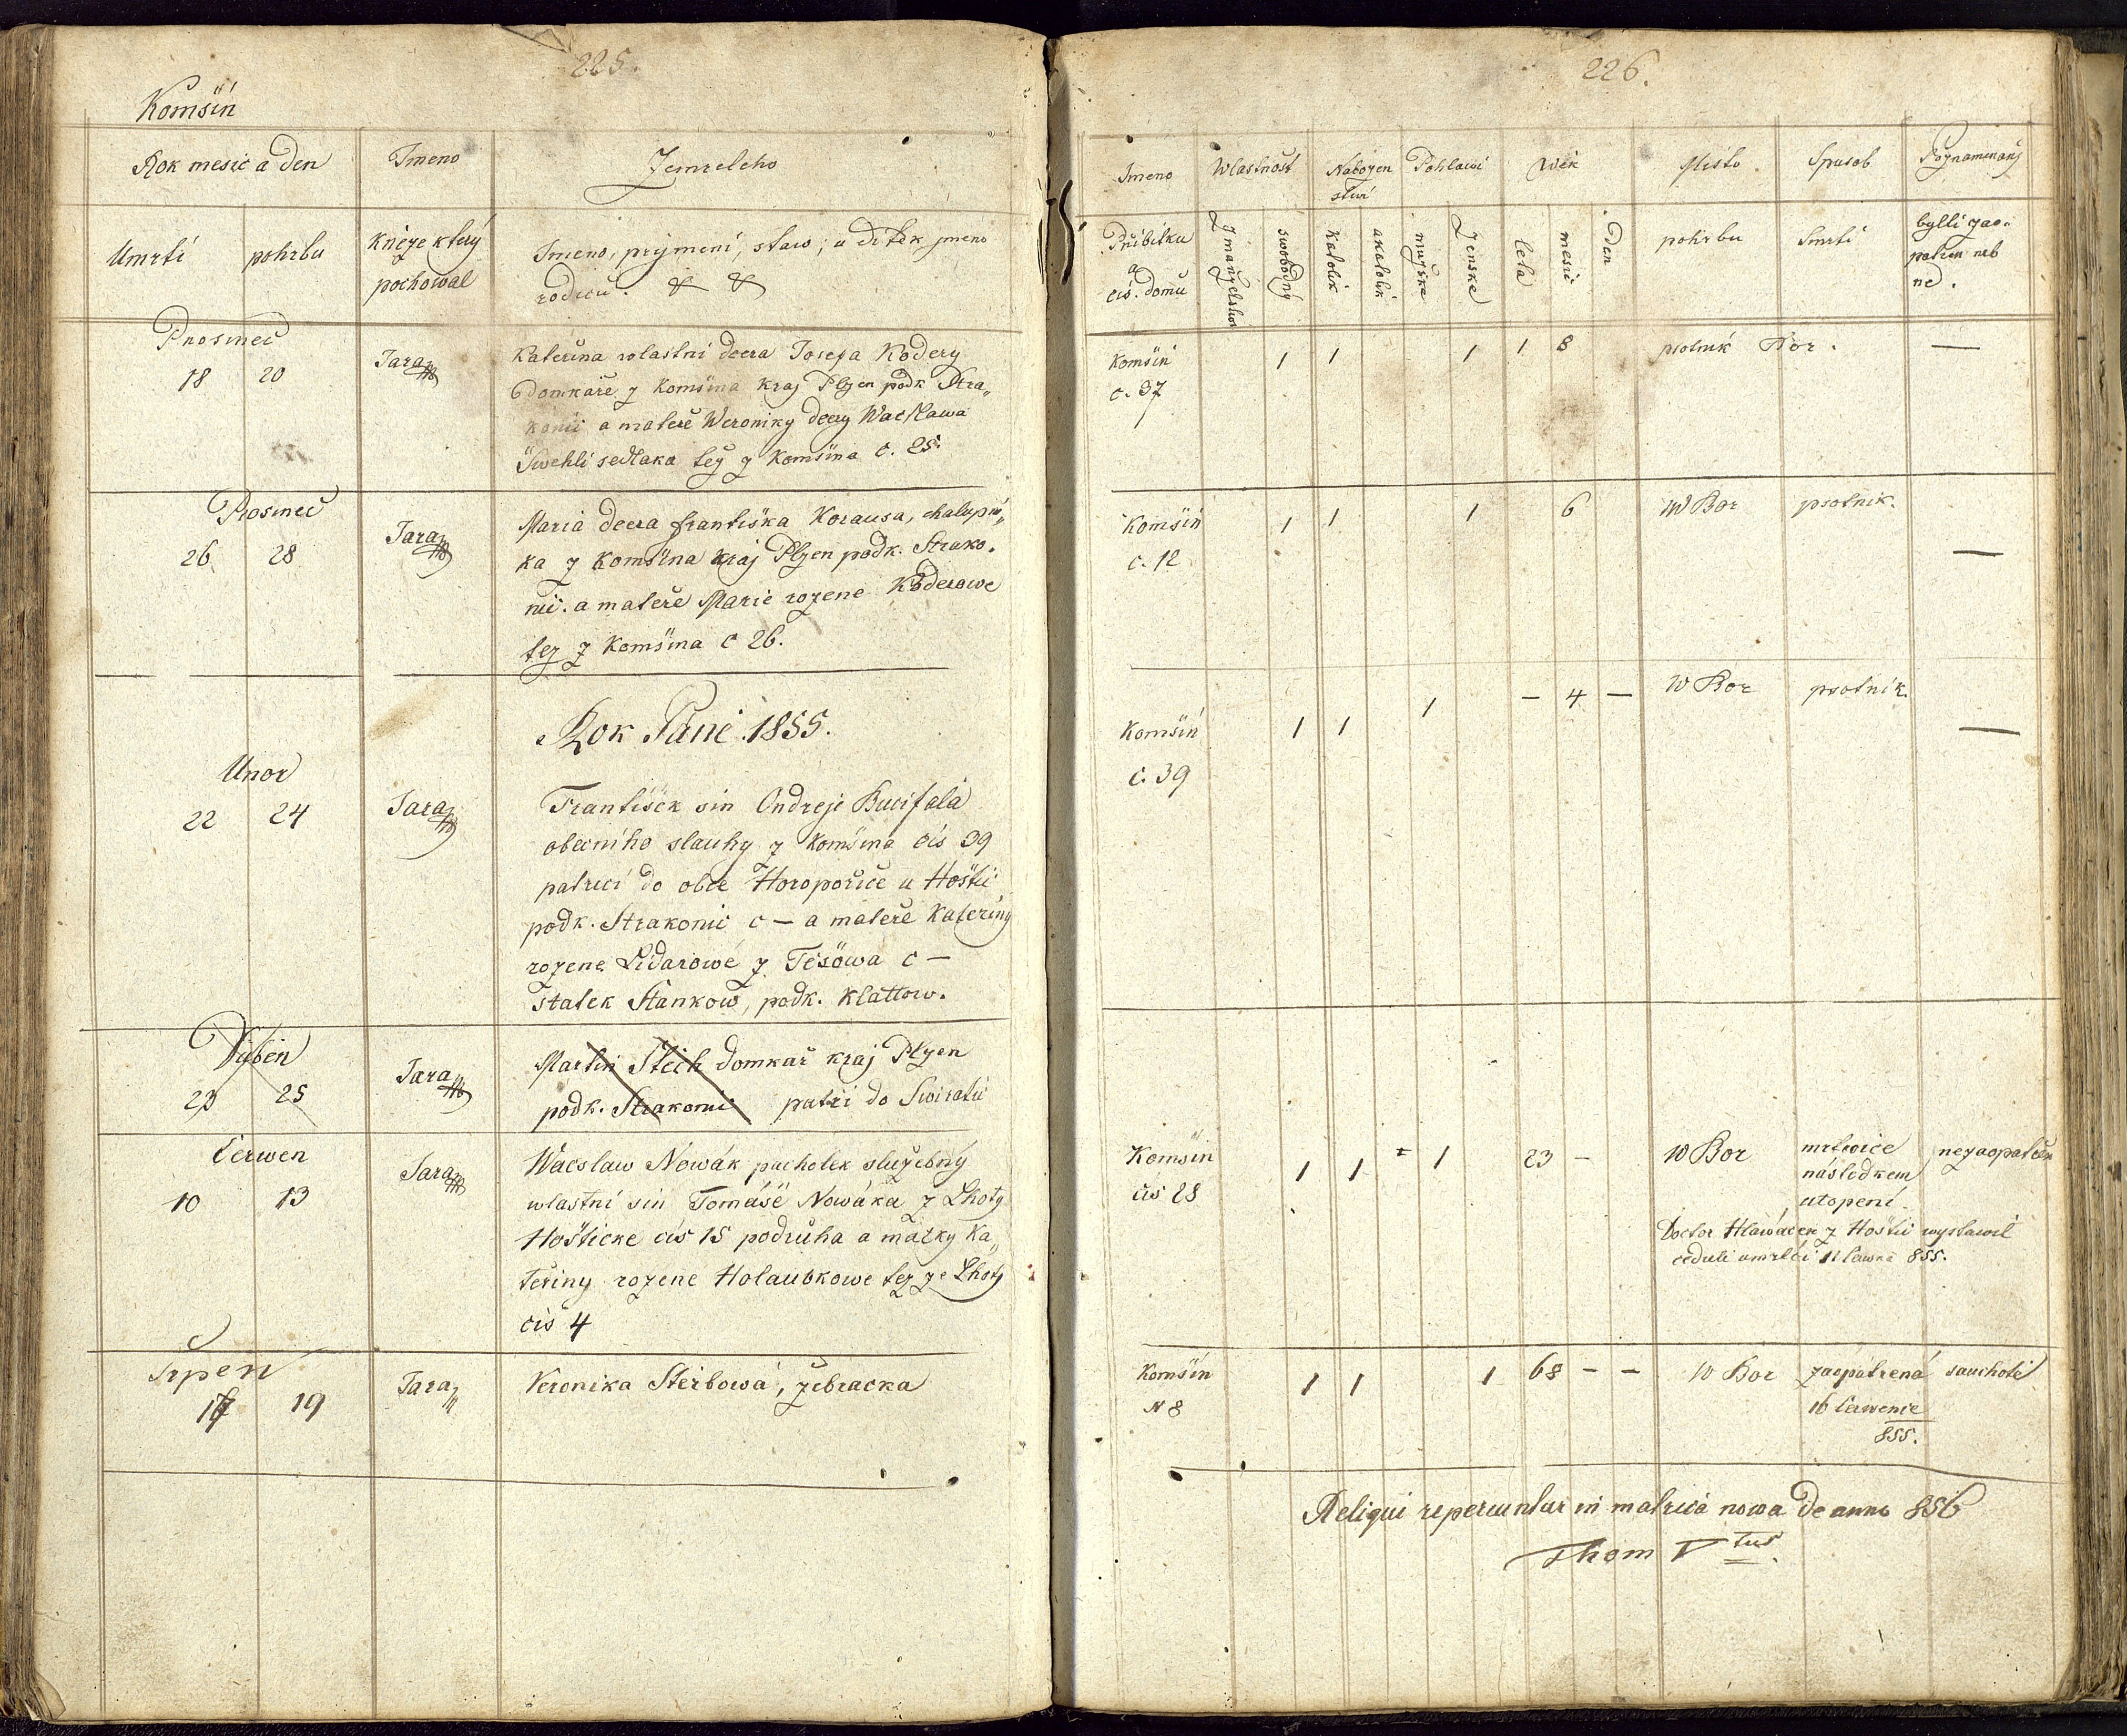 225.
Komšin
Rok mesic a den
Jmeno
Zemreleho
Umrti
pohrbu
Kněze který
pochowal
Jmeno, prijmeni, staw, u ditek jmeno
rodičů. & &
Prosinec
18 20
Jara
Kateřina wlastni dcera Josefa Kodery
domkaře z Komšina kraj Plzen podk Stra„
konic a mateře Weroniky dcery Wacslawa
Šwehli sedlaka tez z Komšina c. 25.
Prosinec
26 28
Jara
Maria dcera Františka Korausa, chalupni„
ka z Komšina kraj Plzen podk. Strako„
nic. a mateře Marie rozene Koderowe
tez z Komšina c 26.
Rok Páně 1855.
Unor
22 24
Jara
František sin Ondreje Bucifala
obecniho slauhy z Komšina čis 39
patrici do obce Horoporice u Hoštic
podk. Strakonic c — a mateře Kateriny
rozene Lidarowé z Tešowa c —
statek Stankow, podk. Klattow.
Duben
23 25
Jara
Martin Stech domkař kraj Plzen
podk. Strakonic patři do Swiratic
Čerwen
10 13
Jara
Wácslaw Nowák pacholek služebný
wlastní sin Tomáše Nowáka z Lhoty
Hošticke čis 15 podruha a matky Ka„
teřiny rozene Holaubkowe tez ze Lhoty
čis 4
Srpen
17 19
Jara
Veronika Sterbowá, žebracka
226.
Jmeno
Wlastnost
Nabozen
stwi
Pohlawi
Wěk
Misto
Spusob
Poznamenaný
Přibitku
a
čis. domu
z manzelstwi
swobodny
katolik
akatolik
mužske
ženske
leta
mesic
den
pohrbu
Smrti
bylli zao„
patřen neb
ne.
Komšin
c. 37
1 1 1 1 8 psotnik Bor. —
Komšin
c. 12
1 1 1 6 W Bor psotnik. —
Komšin
c. 39
1 1 1 — 4 — W Bor psotnik. —
Komšin
čis 28
1 1 1 23 — W Bor mrtwice nezaopatřen
násled­kem
utopení
Doctor Hlawáček z Hoštic wystawil
ceduli umrlčí 11 čawna 855.
Komšin
N 8
1 1 1 68 — — W Bor zaopatřená sauchoti
16 čerwence
855.
Reliqui reperiuntur in matrica nowa de anno 856
Thom